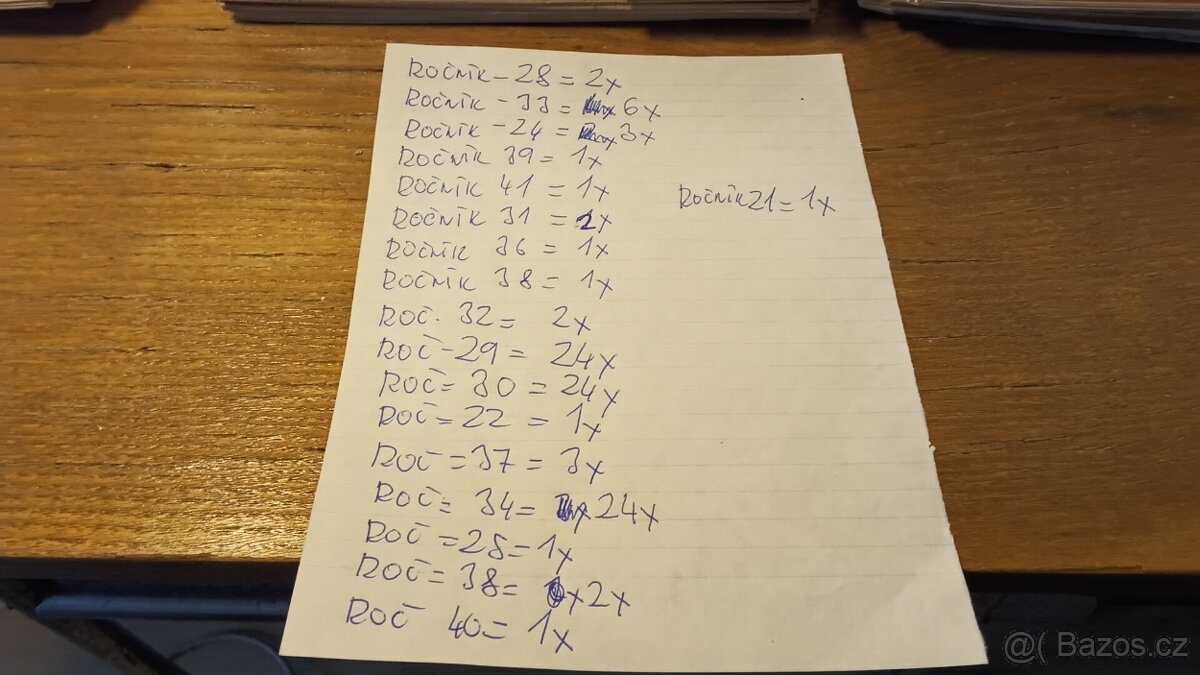 Ročník - 28 = 2x
Ročník - 33 = 6x
Ročník - 24 = 3x
Ročník 39 = 1x
Ročník 41 = 1x
Ročník 21 = 1x
Ročník 31 = 2x
Ročník 36 = 1x
Ročník 38 = 1x
Roč. 32 = 2x
Roč - 29 = 24x
Roč = 30 = 24x
Roč = 22 = 1x
Roč = 37 = 3x
Roč = 34 = 24x
Roč = 28 = 1x
Roč = 38 = 2x
Roč 40 = 1x
@( Bazos.cz